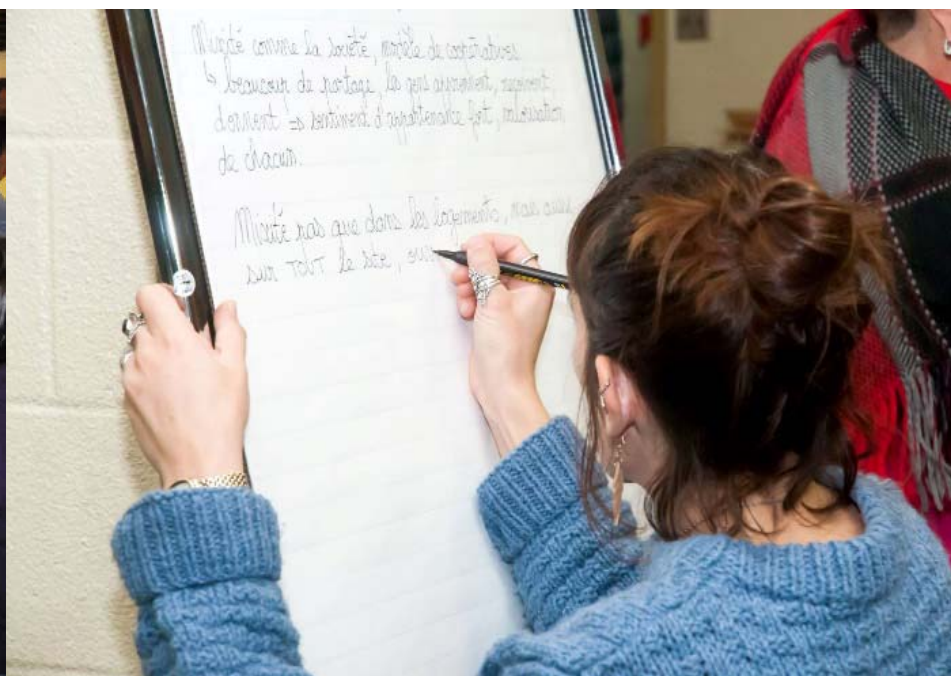 Mixité comme la société, modèle de coopératives
↳ beaucoup de partage, les gens apprennent, reçoivent,
donnent => sentiment d'appartenance fort, valorisation
de chacun.
Mixité pas que dans les logements, mais aussi
sur TOUT le site,